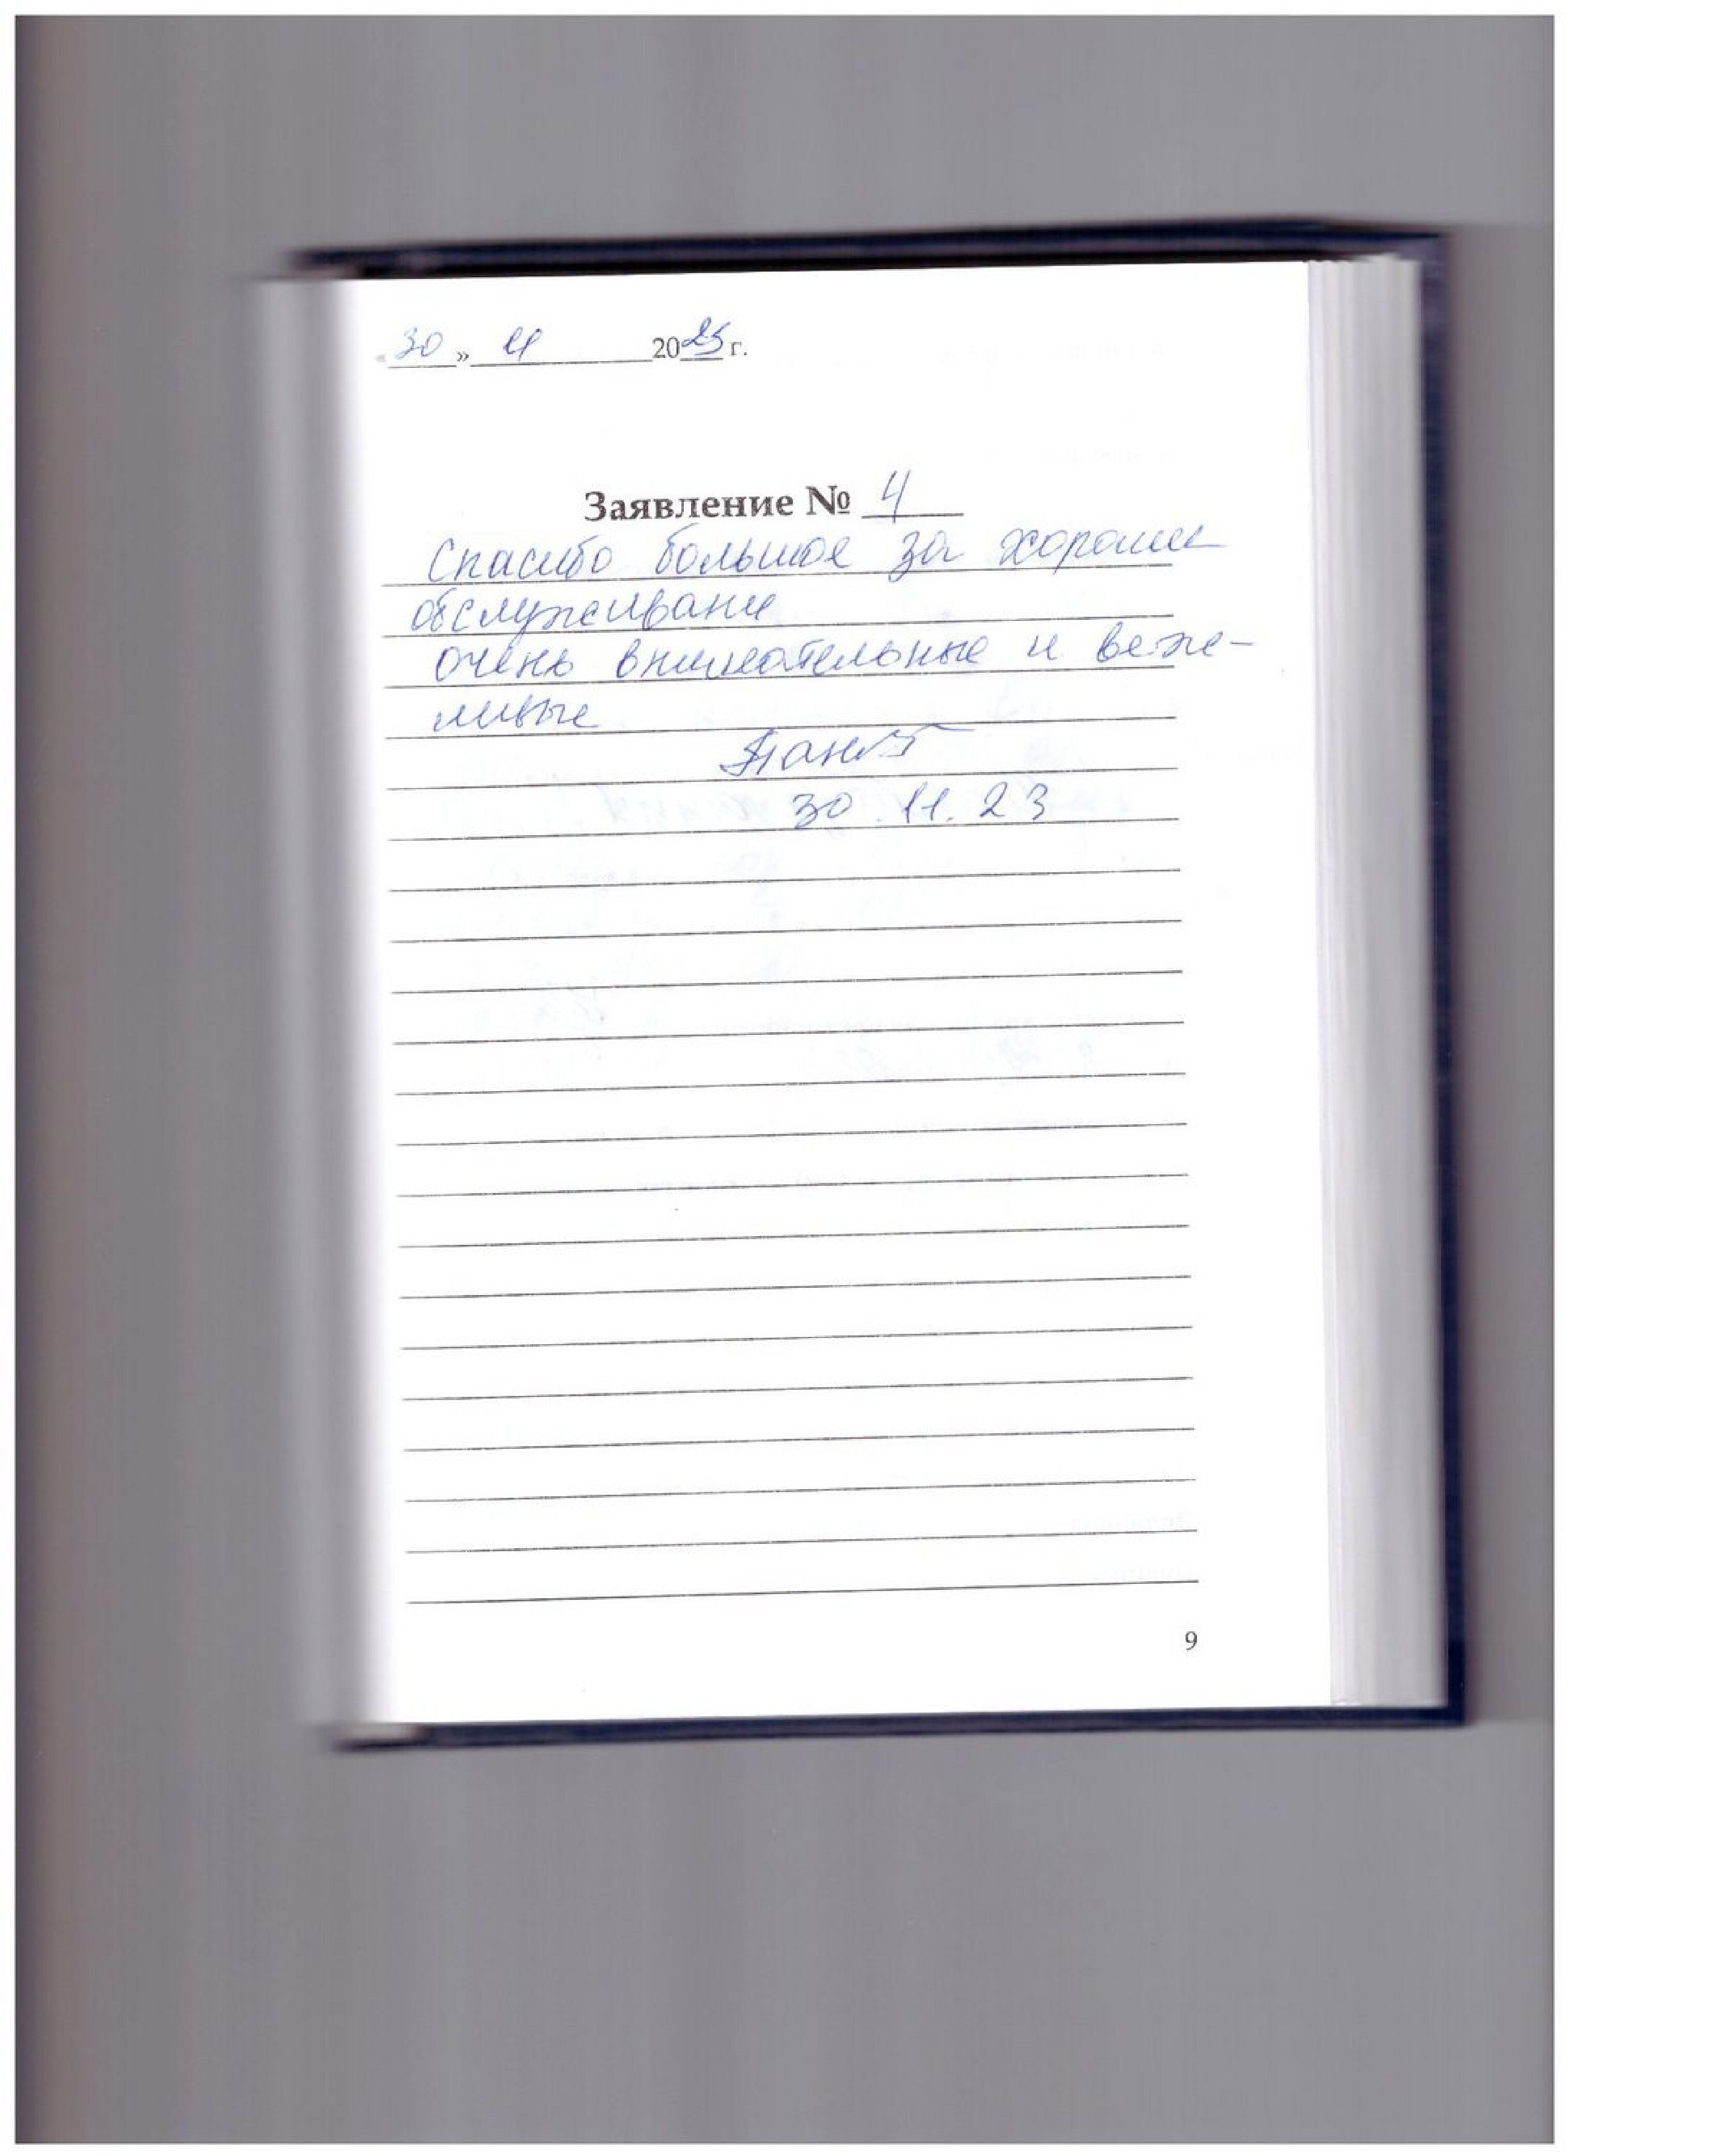 «30» 11 2023 г.
Заявление № 4
Спасибо большое за хороше
обслуживани
очень внимательные и веж-
ливые
30.11.23
9